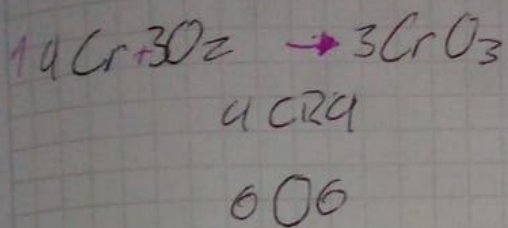 1 4Cr+3O2 → 3CrO3
4 CR 4
6 O 6